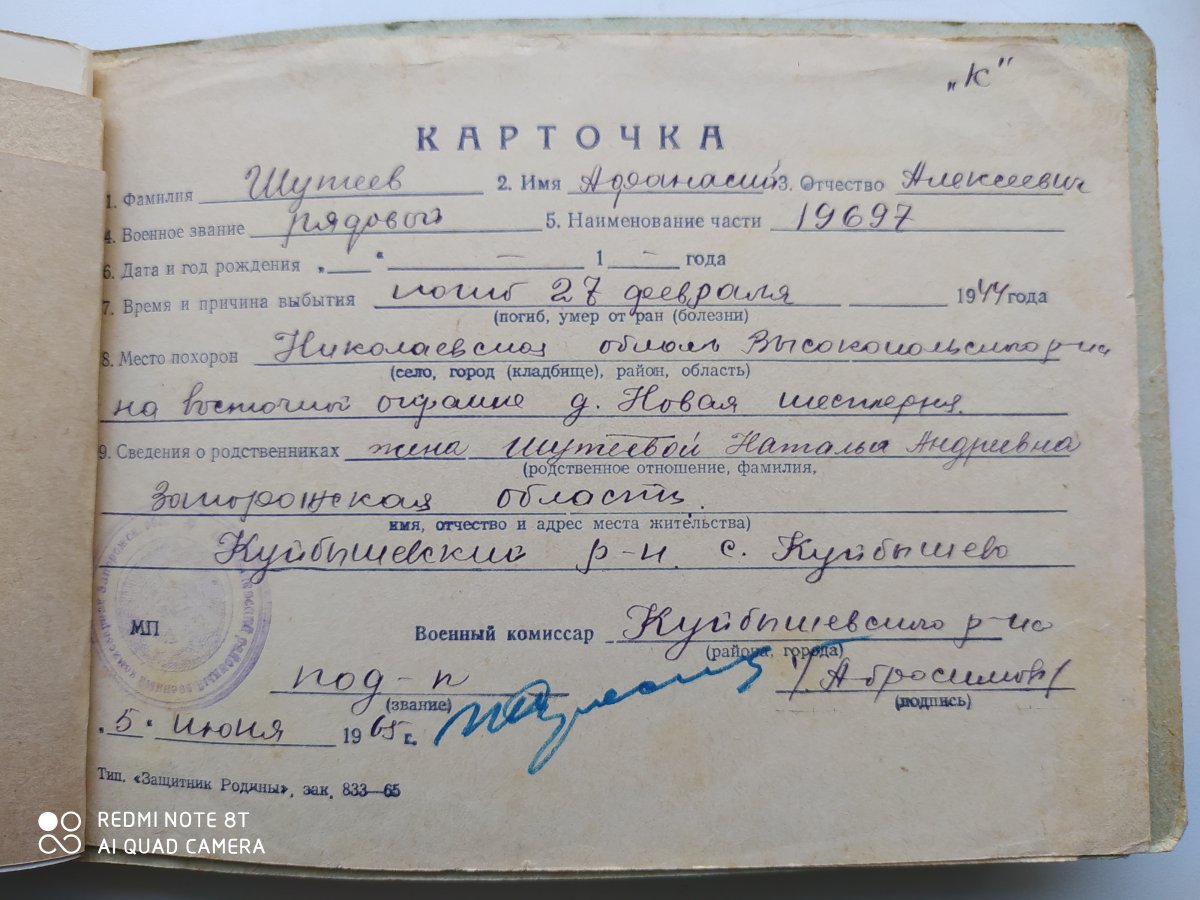 „К"
КАРТОЧКА
1. Фамилия Шутеев 2. Имя Афанасий 3. Отчество Алексеевич
4. Военное звание рядовый 5. Наименование части 19697
6. Дата и год рождения „ “ — 1 — года
7. Время и причина выбытия погиб 27 февраля 1944 года
(погиб, умер от ран (болезни)
8. Место похорон Николаевская область Высокопольского р-на
(село, город (кладбище), район, область)
на восточной окраине д. Новая шестерня.
9. Сведения о родственниках жена Шутеевой Наталья Андреевна
(родственное отношение, фамилия,
Запорожская область.
имя, отчество и адрес места жительства)
Куйбышевский р-н с. Куйбышево
МП
Военный комиссар Куйбышевского р-на
(района, города)
под-п /Абросимов/
(звание) (подпись)
„5“ июня 1965 г.
Тип. «Защитник Родины», зак. 833—65
REDMI NOTE 8T
AI QUAD CAMERA